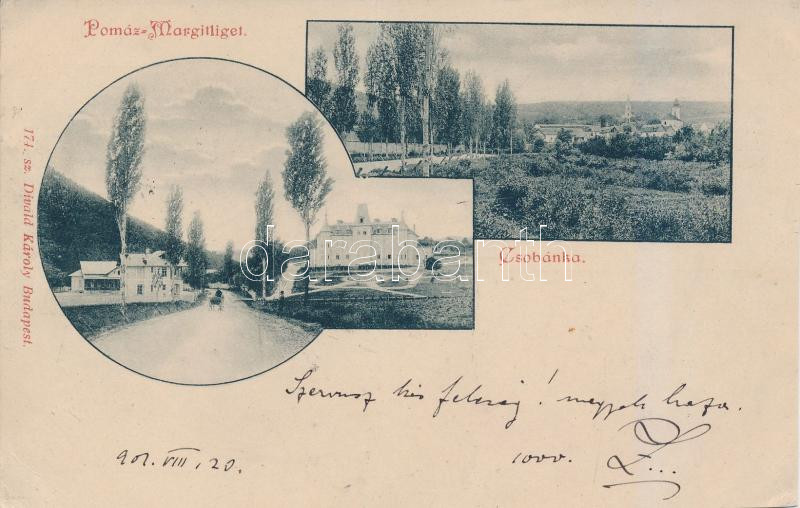 Pomáz-Margitliget.
Csobánka.
174. sz. Divald Károly Budapest.
darabanth
Szervusz kis felség! megyek haza.
901. VIII. 20.
1000.